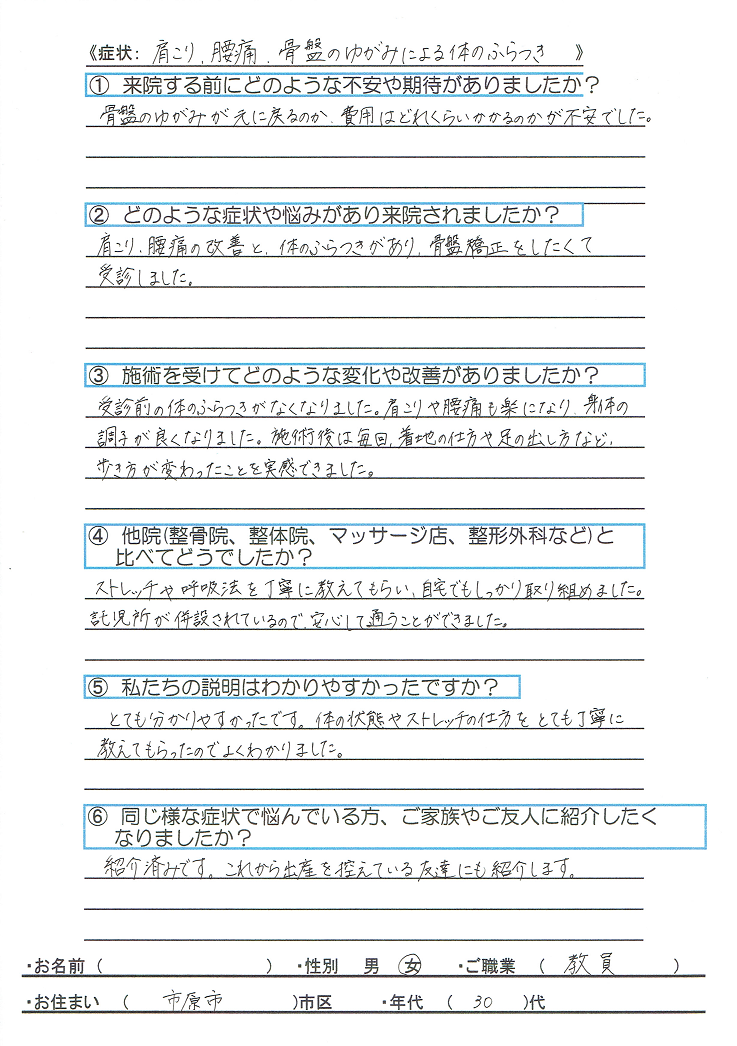 《症状: 肩こり、腰痛、骨盤のゆがみによる体のふらつき 》
① 来院する前にどのような不安や期待がありましたか？
骨盤のゆがみが元に戻るのか、費用はどれくらいかかるのかが不安でした。
② どのような症状や悩みがあり来院されましたか？
肩こり、腰痛の改善と、体のふらつきがあり、骨盤矯正をしたくて
受診しました。
③ 施術を受けてどのような変化や改善がありましたか？
受診前の体のふらつきがなくなりました。肩こりや腰痛も楽になり、身体の
調子が良くなりました。施術後は毎回、着地の仕方や足の出し方など、
歩き方が変わったことを実感できました。
④ 他院(整骨院、整体院、マッサージ店、整形外科など)と
比べてどうでしたか？
ストレッチや呼吸法を丁寧に教えてもらい、自宅でもしっかり取り組めました。
託児所が併設されているので、安心して通うことができました。
⑤ 私たちの説明はわかりやすかったですか？
とても分かりやすかったです。体の状態やストレッチの仕方をとても丁寧に
教えてもらったのでよくわかりました。
⑥ 同じ様な症状で悩んでいる方、ご家族やご友人に紹介したく
なりましたか？
紹介済みです。これから出産を控えている友達にも紹介します。
・お名前 ( ) ・性別 男 女 ・ご職業 ( 教員 )
・お住まい ( 市原市 )市区 ・年代 ( 30 )代